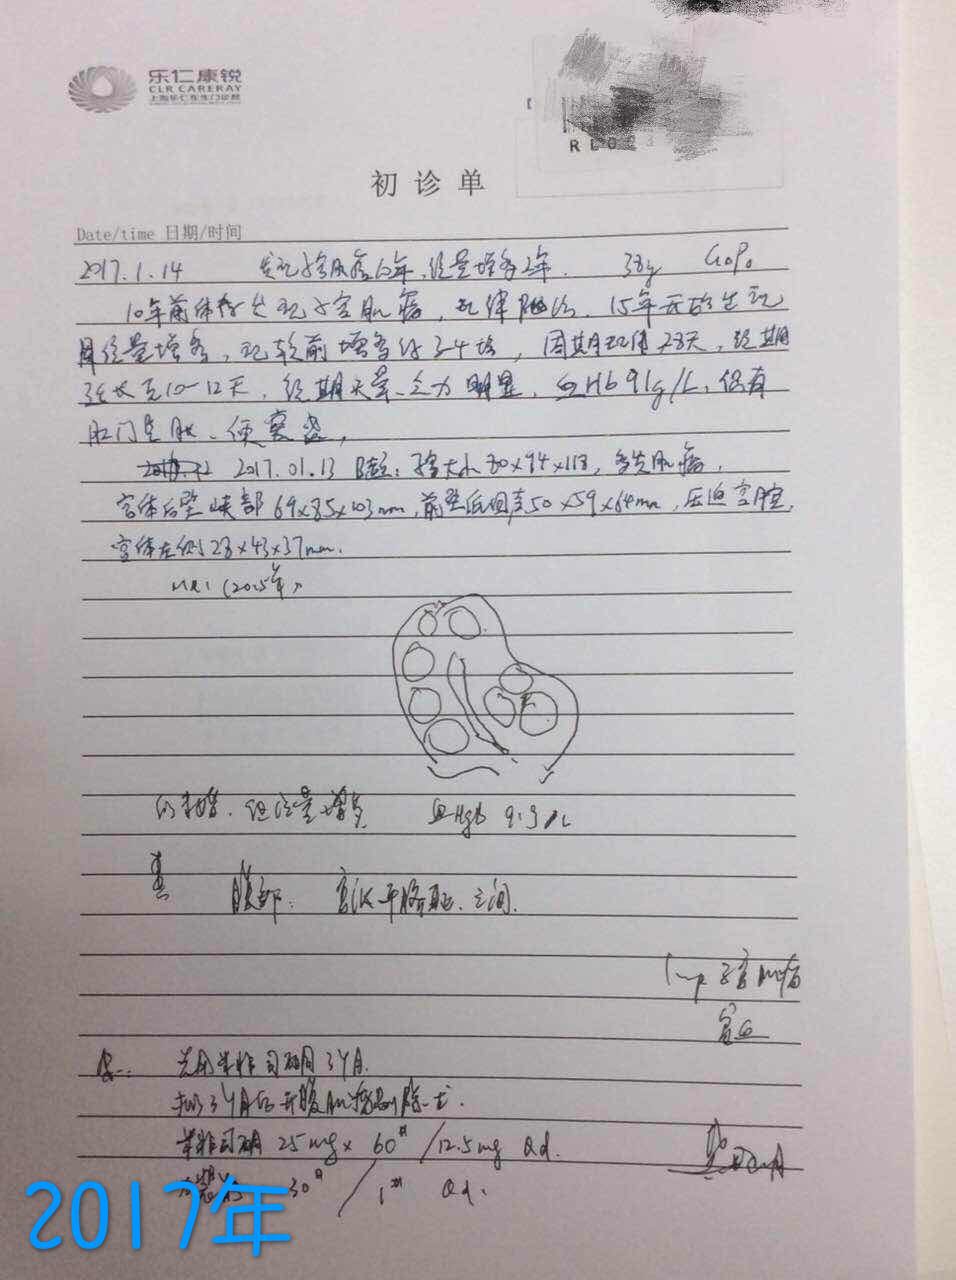 乐仁康锐
CLR CARERAY
初诊单
Date/time 日期/时间
2017.1.14 发现子宫肌瘤10年,经量增多2年. 38y G0P0
10年前体检发现子宫肌瘤,
月经量增多,现较前增多约3-4倍,周期规律28天,经期
延长至10-12天,经期头晕、乏力明显,血Hb 91g/L,偶有
肛门坠胀、便
2017.01.13 B超:子宫大小80×94×118,多发肌瘤,
宫体后壁峡部69×85×103mm,前壁 50×59×64mm,压迫宫腔,
宫体左侧28×43×37mm.
MRI (2015年)
但经量增多 血Hgb 9.3
腹部: 宫底平脐 之间.
Imp 子宫肌瘤
贫血
先用米非司酮3个月.
3个月后开腹肌瘤剔除术.
米非司酮 25mg× 60# /12.5mg Qd.
30# / 1# Qd.
2017年